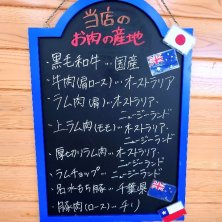 当店の
お肉の産地
・黒毛和牛…国産
・牛肉(肩ロース)…オーストラリア
・ラム肉(肩)…オーストラリア
ニュージーランド
・上ラム肉(もも)…オーストラリア
ニュージーランド
・厚切りラム肉…オーストラリア
ニュージーランド
・ラムチョップ…ニュージーランド
もち豚…千葉県
・豚肉(ロース)…チリ